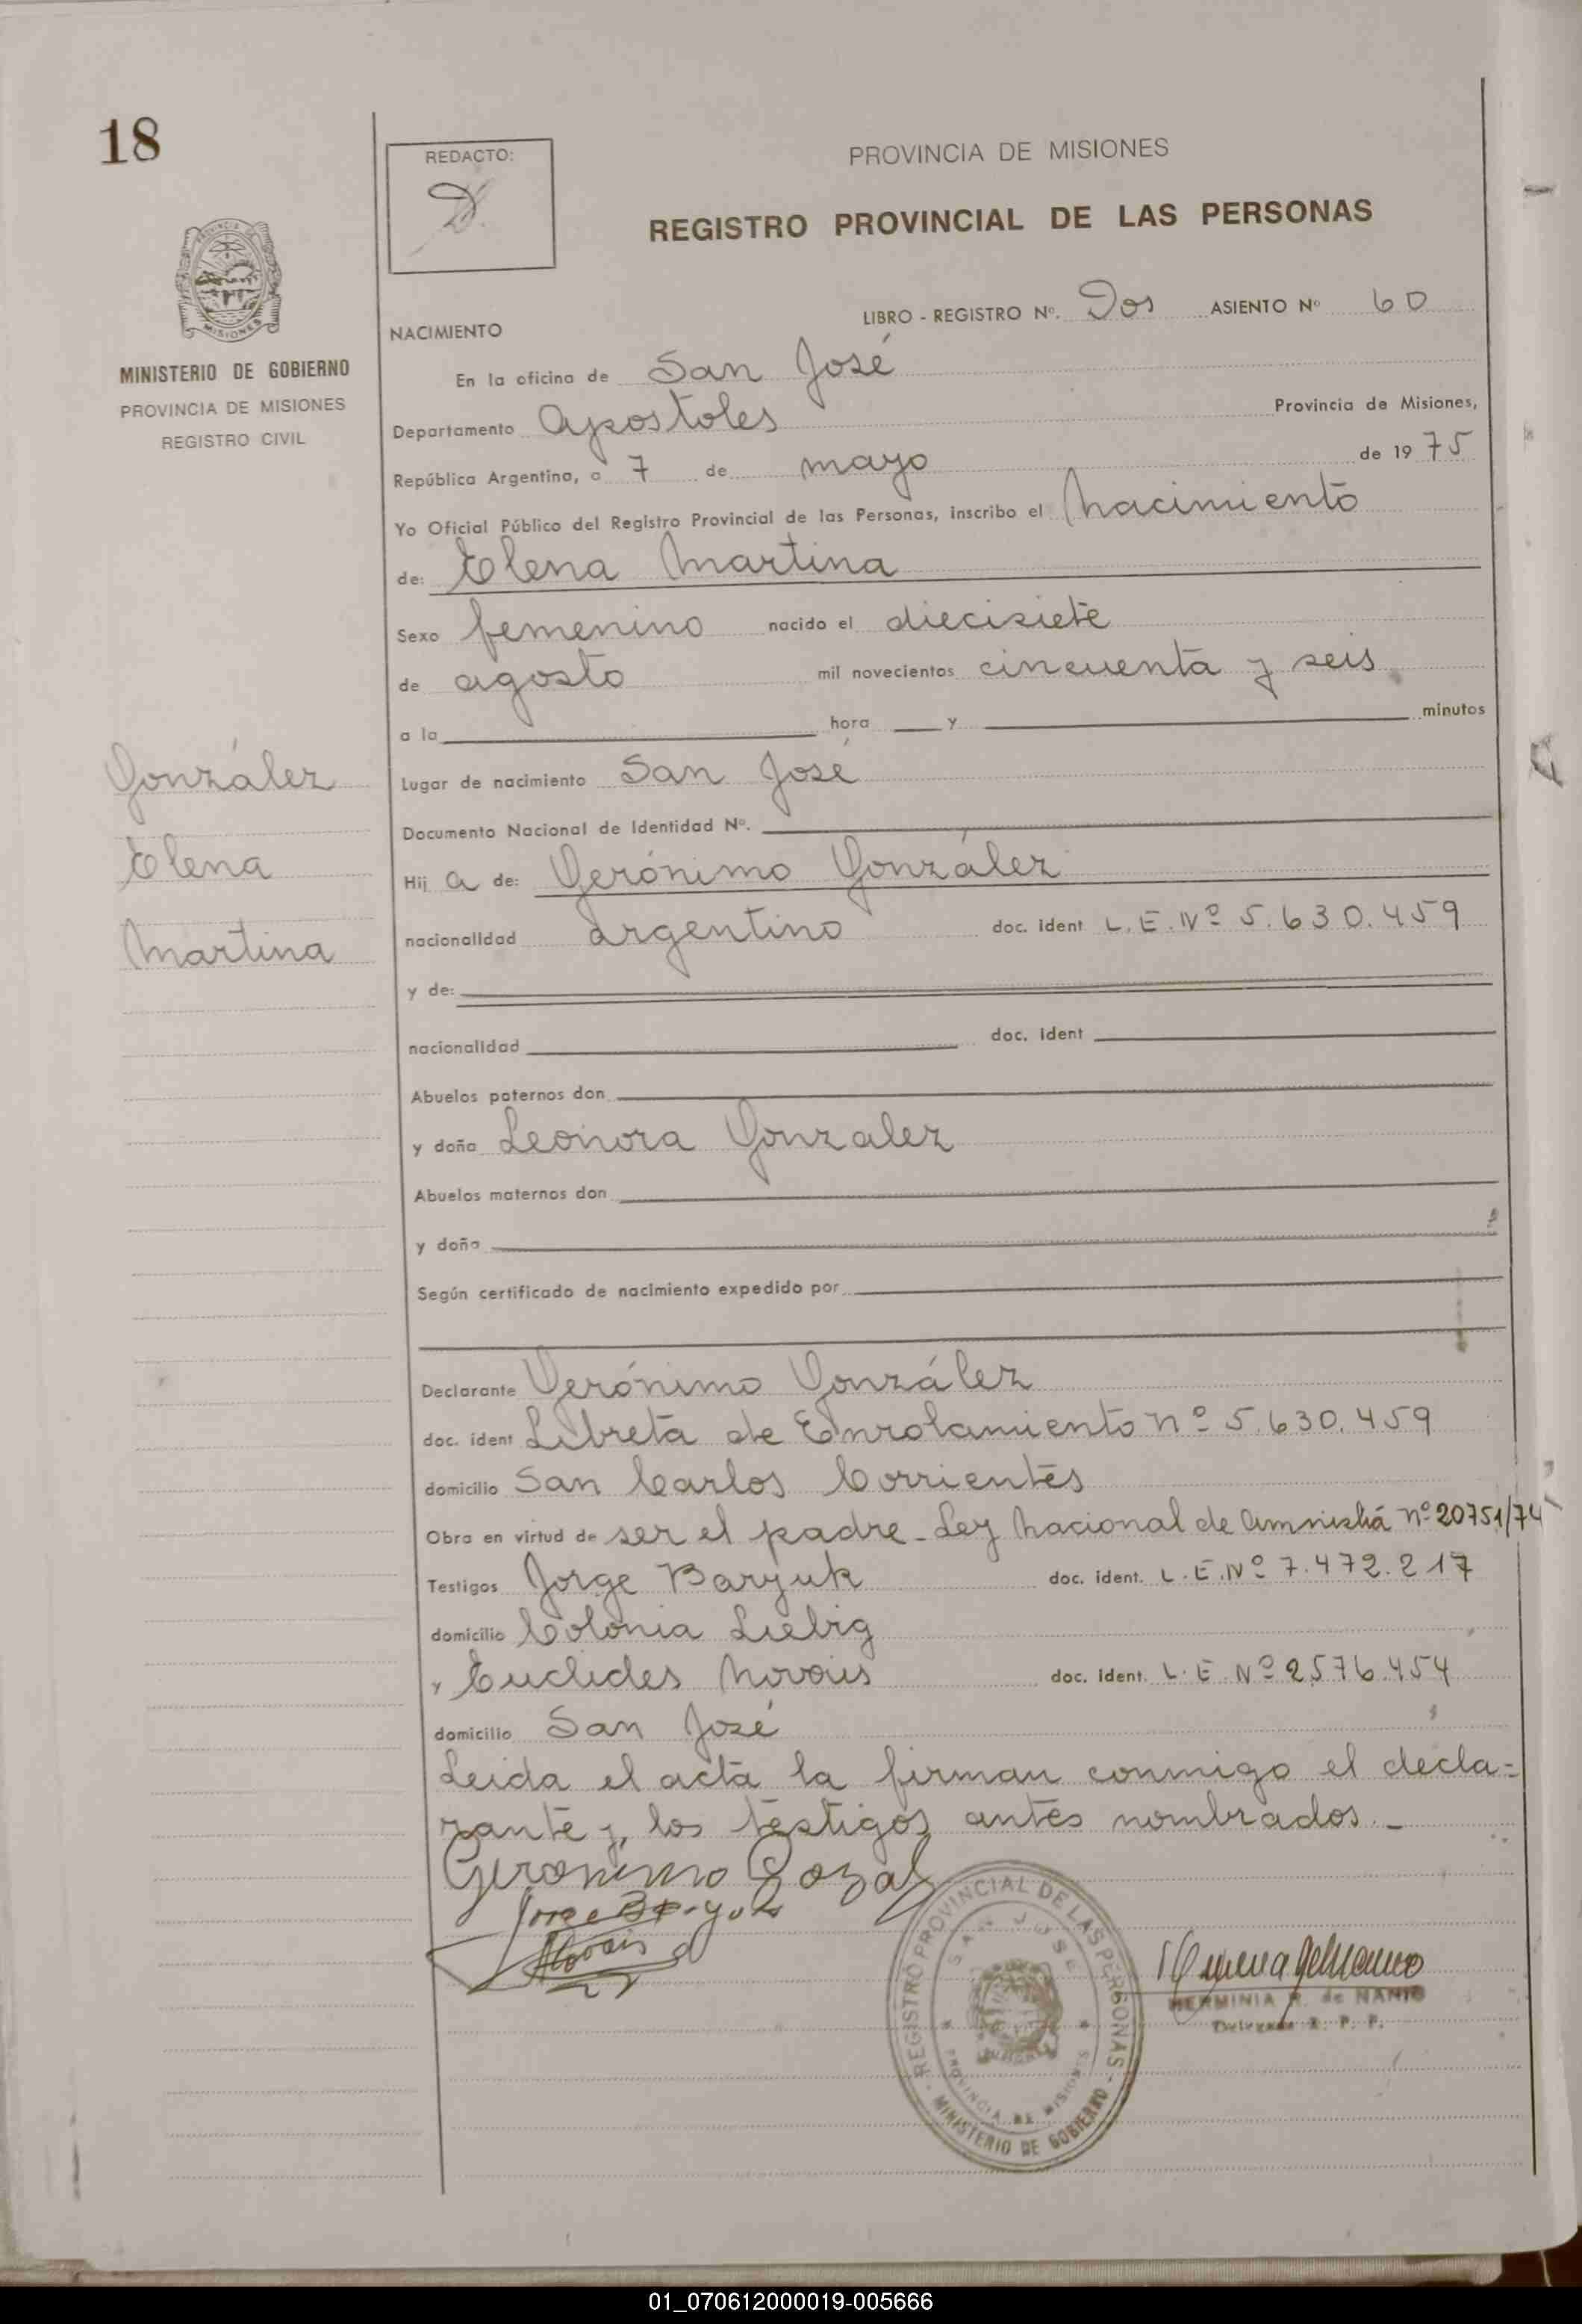 18
REDACTO:
PROVINCIA DE MISIONES
REGISTRO PROVINCIAL DE LAS PERSONAS
MINISTERIO DE GOBIERNO
PROVINCIA DE MISIONES
REGISTRO CIVIL
LIBRO - REGISTRO Nº. Dos ASIENTO Nº 60
NACIMIENTO
En la oficina de San José
Departamento Apostoles Provincia de Misiones,
República Argentina, a 7 de mayo de 1975
Yo Oficial Público del Registro Provincial de las Personas, inscribo el nacimiento
de: Elena Martina
Sexo femenino nacido el diecisiete
de agosto mil novecientos cincuenta y seis
a la hora y minutos
González
Elena
Martina
Lugar de nacimiento San José
Documento Nacional de Identidad Nº.
Hij a de: Gerónimo González
nacionalidad argentino doc. ident L.E.Nº 5.630.459
y de:
nacionalidad doc. ident
Abuelos paternos don
y doña Leonora Gonzalez
Abuelos maternos don
y doña
Según certificado de nacimiento expedido por
Declarante Gerónimo González
doc. ident Libreta de Enrolamiento nº 5.630.459
domicilio San Carlos Corrientes
Obra en virtud de ser el padre - Ley nacional de amnistía nº 20751/74
Testigos Jorge Baryuk doc. ident. L.E.Nº 7.472.217
domicilio Colonia Liebig
y Euclides Novais doc. ident. L.E Nº 2576.454
domicilio San José
Leida el acta la firman conmigo el decla=
rante y, los testigos antes nombrados.-
Geronimo Gozalz
Jorge Baryuk
Novais
REGISTRO PROVINCIAL DE LAS PERSONAS
SAN JOSE
PROVINCIA DE MISIONES
MINISTERIO DE GOBIERNO
HERMINIA R. de NANIO
Delegada R. P. P.
01_070612000019-005666